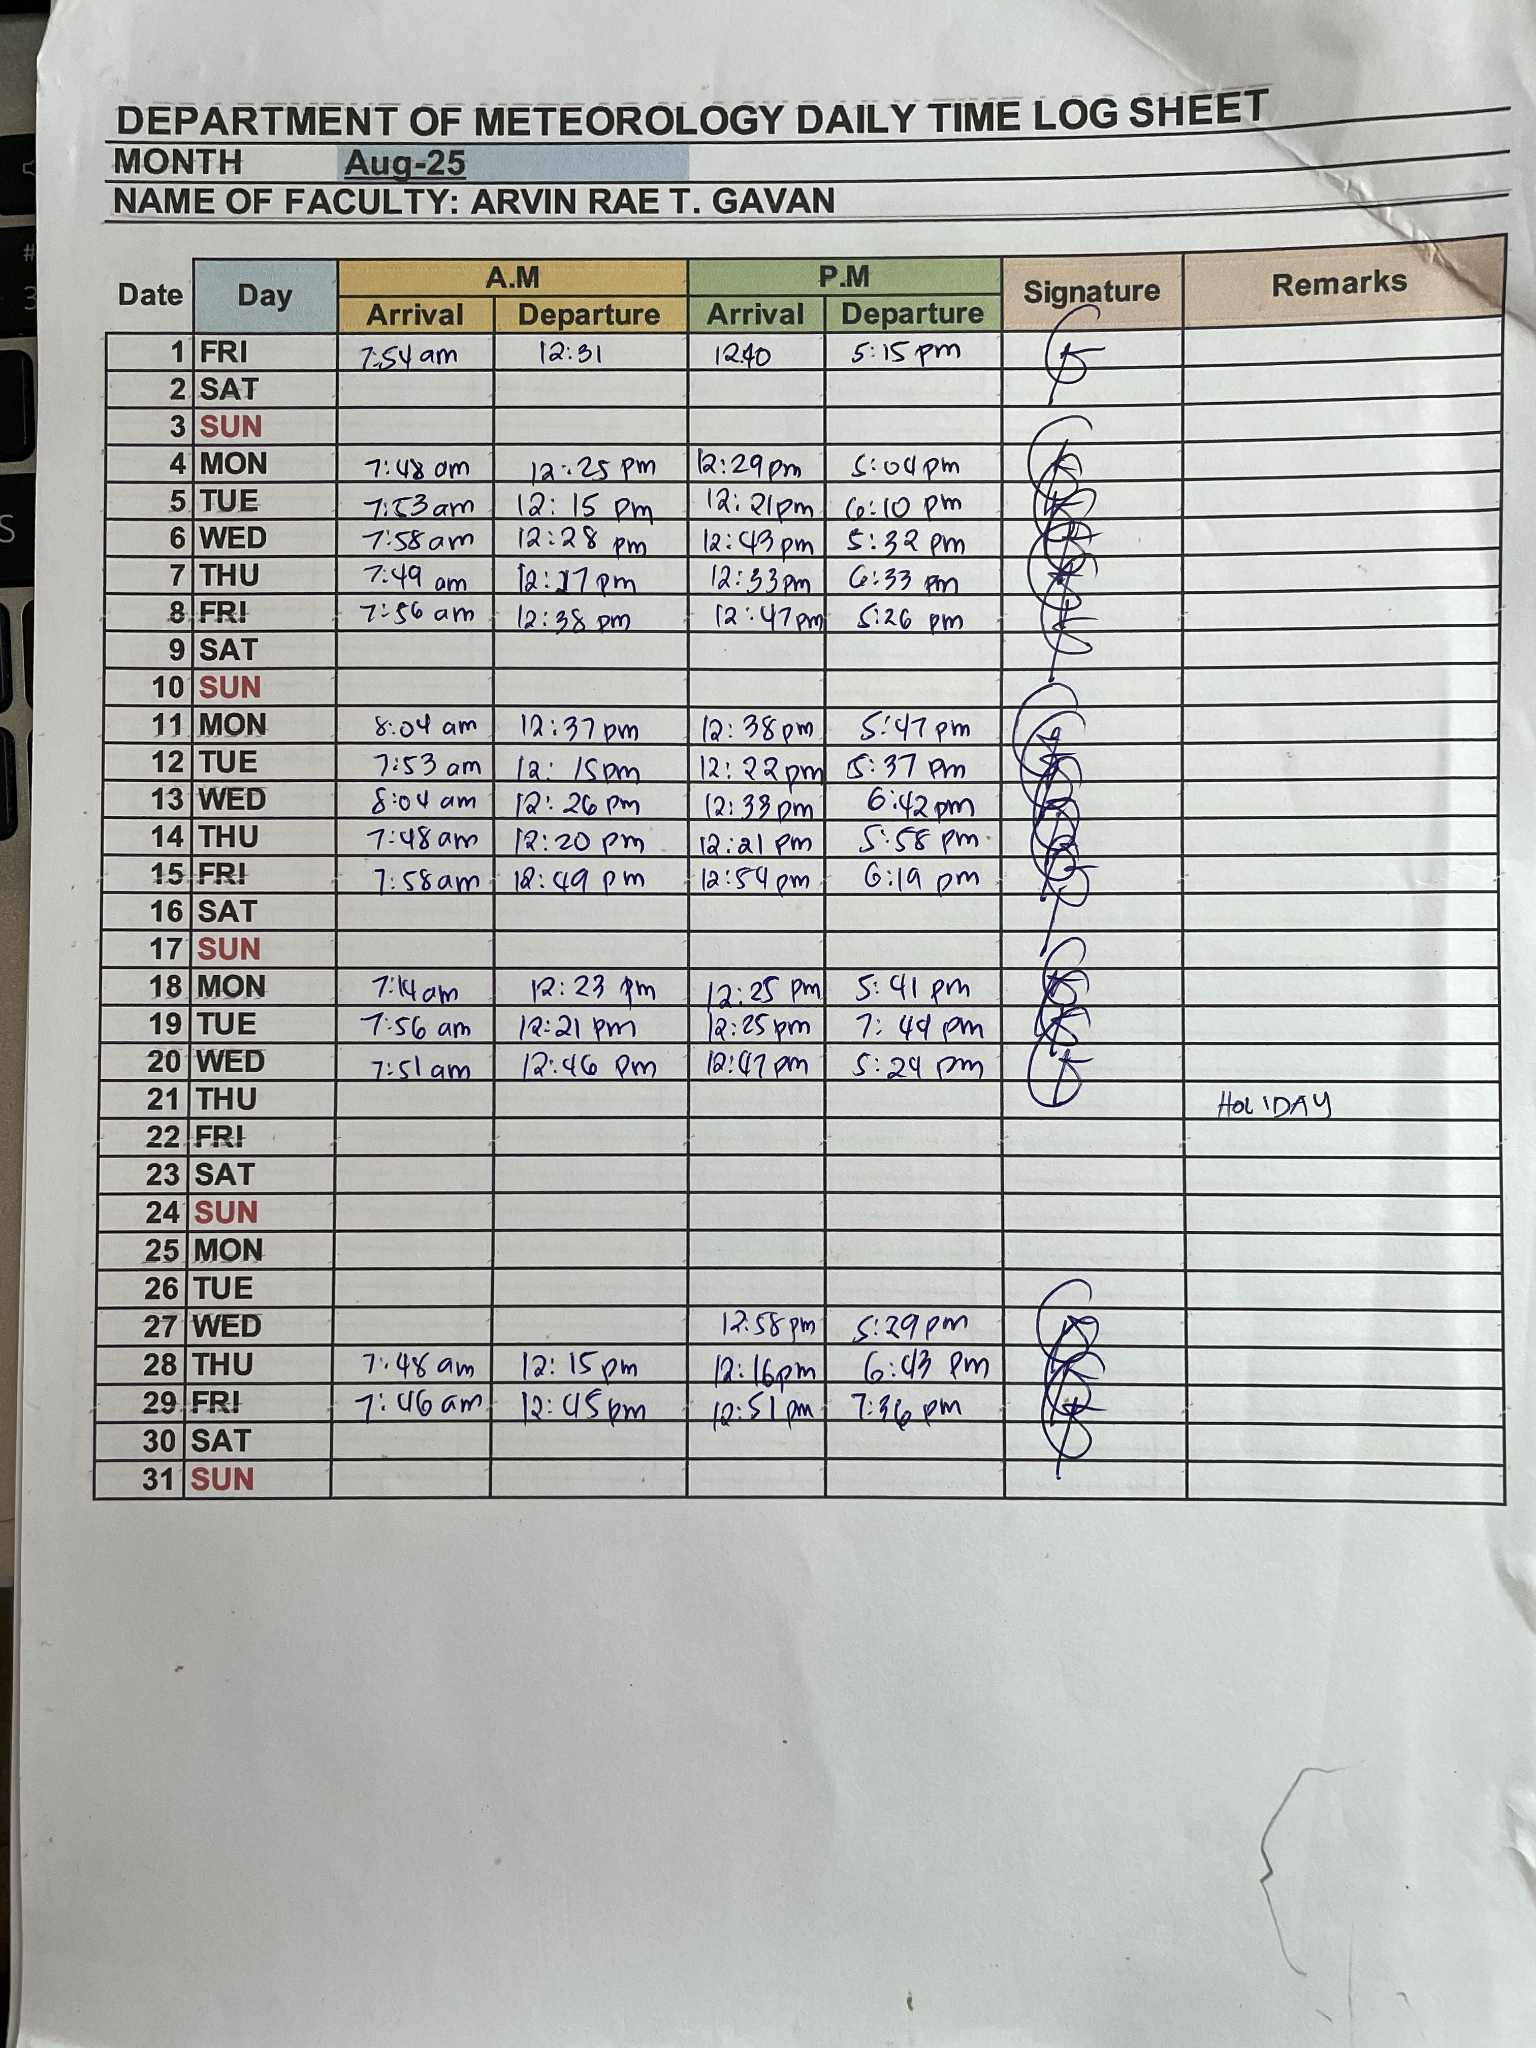 DEPARTMENT OF METEOROLOGY DAILY TIME LOG SHEET
MONTH Aug-25
NAME OF FACULTY: ARVIN RAE T. GAVAN
Date Day A.M P.M Signature Remarks
Arrival Departure Arrival Departure
1 FRI 7:54 am 12:31 12:40 5:15 pm
2 SAT
3 SUN
4 MON 7:48 am 12:25 pm 12:29 pm 5:04 pm
5 TUE 7:53 am 12:15 pm 12:21 pm 6:10 pm
6 WED 7:58 am 12:28 pm 12:43 pm 5:32 pm
7 THU 7:49 am pm 12:33 pm 6:33 pm
8 FRI 7:56 am 12:38 pm 12:47 pm 5:26 pm
9 SAT
10 SUN
11 MON 8:04 am 12:37 pm 12:38 pm 5:47 pm
12 TUE 7:53 am 12:15 pm 12:22 pm 5:37 pm
13 WED 8:04 am 12:26 pm 12:33 pm 6:42 pm
14 THU 7:48 am 12:20 pm 12:21 pm 5:58 pm
15 FRI 7:58 am 12:49 pm 12:54 pm 6:19 pm
16 SAT
17 SUN
18 MON 7:14 am 12:23 pm 12:25 pm 5:41 pm
19 TUE 7:56 am 12:21 pm 12:25 pm pm
20 WED 7:51 am 12:46 pm 12:47 pm pm
21 THU HOLIDAY
22 FRI
23 SAT
24 SUN
25 MON
26 TUE
27 WED 12:58 pm 5:29 pm
28 THU 7:48 am 12:15 pm 12:16 pm 6:43 pm
29 FRI 7:46 am 12:45 pm 12:51 pm pm
30 SAT
31 SUN